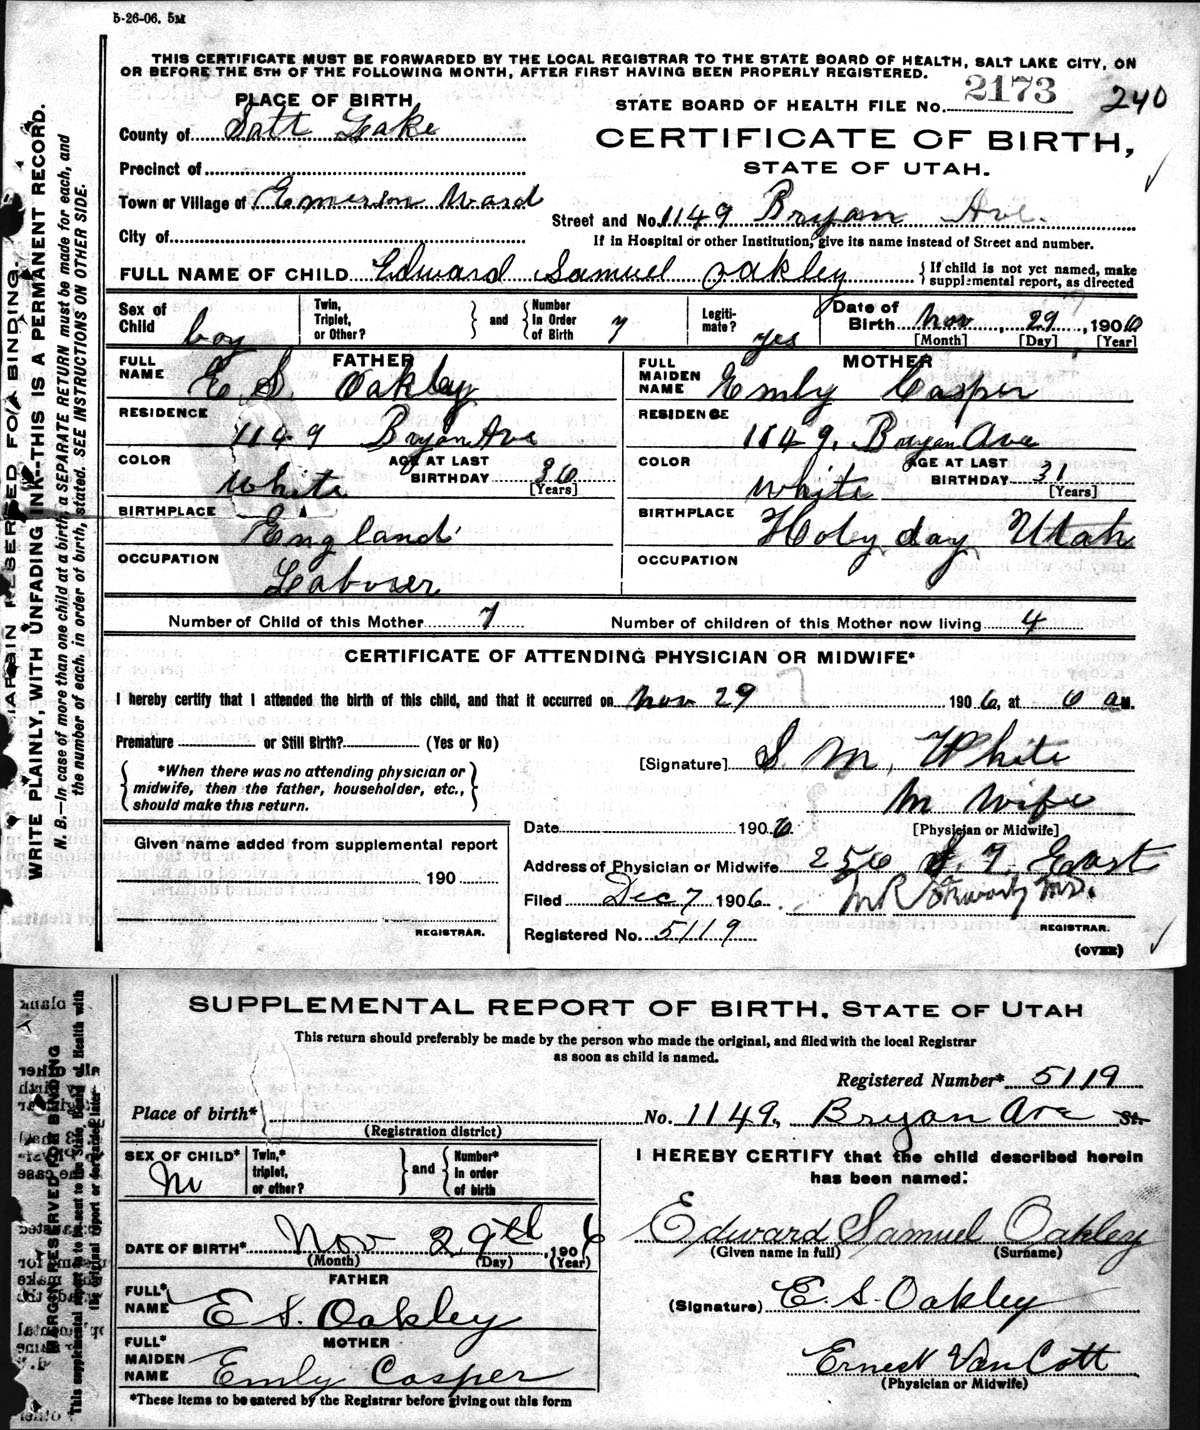 5-26-06. 5M
THIS CERTIFICATE MUST BE FORWARDED BY THE LOCAL REGISTRAR TO THE STATE BOARD OF HEALTH, SALT LAKE CITY, ON
OR BEFORE THE 5TH OF THE FOLLOWING MONTH, AFTER FIRST HAVING BEEN PROPERLY REGISTERED.
PLACE OF BIRTH
STATE BOARD OF HEALTH FILE No. 2173 240
County of Salt Lake
CERTIFICATE OF BIRTH,
STATE OF UTAH.
Precinct of
Town or Village of Emerson Ward
Street and No. 1149 Bryan Ave.
City of
If in Hospital or other Institution, give its name instead of Street and number.
FULL NAME OF CHILD Edward Samuel Oakley { If child is not yet named, make
supplemental report, as directed
Sex of Child boy
Twin, Triplet, or Other? } and { Number In Order of Birth 7
Legitimate? yes
Date of Birth Nov, 29, 1906
[Month] [Day] [Year]
FATHER
FULL NAME E S. Oakley
RESIDENCE 1149 Bryan Ave
COLOR White
AGE AT LAST BIRTHDAY 36
[Years]
BIRTHPLACE England
OCCUPATION Laborer
MOTHER
FULL MAIDEN NAME Emly Casper
RESIDENCE 1149. Bryan Ave
COLOR White
AGE AT LAST BIRTHDAY 31
[Years]
BIRTHPLACE Holyday Utah
OCCUPATION
Number of Child of this Mother 7 Number of children of this Mother now living 4
CERTIFICATE OF ATTENDING PHYSICIAN OR MIDWIFE*
I hereby certify that I attended the birth of this child, and that it occurred on Nov 29 1906, at 6 a M.
Premature or Still Birth? (Yes or No)
[Signature] S M, White
{ *When there was no attending physician or
midwife, then the father, householder, etc.,
should make this return. }
M Wife
[Physician or Midwife]
Date 1906
Given name added from supplemental report
190
REGISTRAR.
Address of Physician or Midwife 256 S. 7. East
Filed Dec 7 1906.
REGISTRAR.
Registered No. 5119
(OVER)
MARGIN RESERVED FOR BINDING.
WRITE PLAINLY, WITH UNFADING INK--THIS IS A PERMANENT RECORD.
N. B.—In case of more than one child at a birth, a SEPARATE RETURN must be made for each, and
the number of each, in order of birth, stated. SEE INSTRUCTIONS ON OTHER SIDE.
SUPPLEMENTAL REPORT OF BIRTH, STATE OF UTAH
This return should preferably be made by the person who made the original, and filed with the local Registrar
as soon as child is named.
Registered Number* 5119
Place of birth* No. 1149, Bryan Ave St.
(Registration district)
SEX OF CHILD* M
Twin,* triplet, or other? } and { Number* In order of birth
DATE OF BIRTH* Nov 29th, 1906
(Month) (Day) (Year)
FATHER
FULL* NAME E S. Oakley
MOTHER
FULL* MAIDEN NAME Emly Casper
*These items to be entered by the Registrar before giving out this form
I HEREBY CERTIFY that the child described herein
has been named:
Edward Samuel Oakley
(Given name in full) (Surname)
(Signature) E. S. Oakley
Ernest Van Cott
(Physician or Midwife)
MARGIN RESERVED FOR BINDING
This supplemental report to be sent to the State Board of Health with
the original report or forwarded later